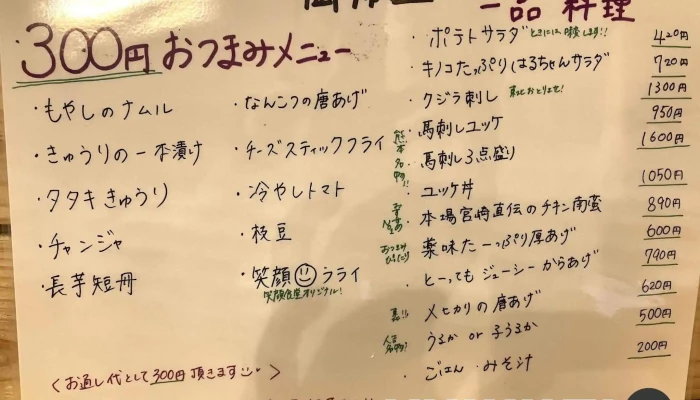 300円 おつまみメニュー
・もやしのナムル
・きゅうりの一本漬け
・タタキきゅうり
・チャンジャ
・長芋短冊
・なんこつの唐あげ
・チーズスティックフライ
・冷やしトマト
・枝豆
・笑顔☺フライ
笑顔食堂オリジナル!
〈お通し代として300円頂きます〉
一品料理
・ポテトサラダ 420円
・キノコたっぷりはるちゃんサラダ 720円
・クジラ刺し 1300円
・馬刺しユッケ 950円
熊本名物!!
・馬刺し3点盛り 1600円
・ユッケ丼 1050円
・本場宮崎直伝のチキン南蛮 890円
おつまみぴったり
・薬味たーっぷり厚あげ 600円
・とーってもジューシーからあげ 790円
・メヒカリの唐あげ 620円
人吉名物!
・うるか or 子うるか 500円
・ごはん・みそ汁 200円